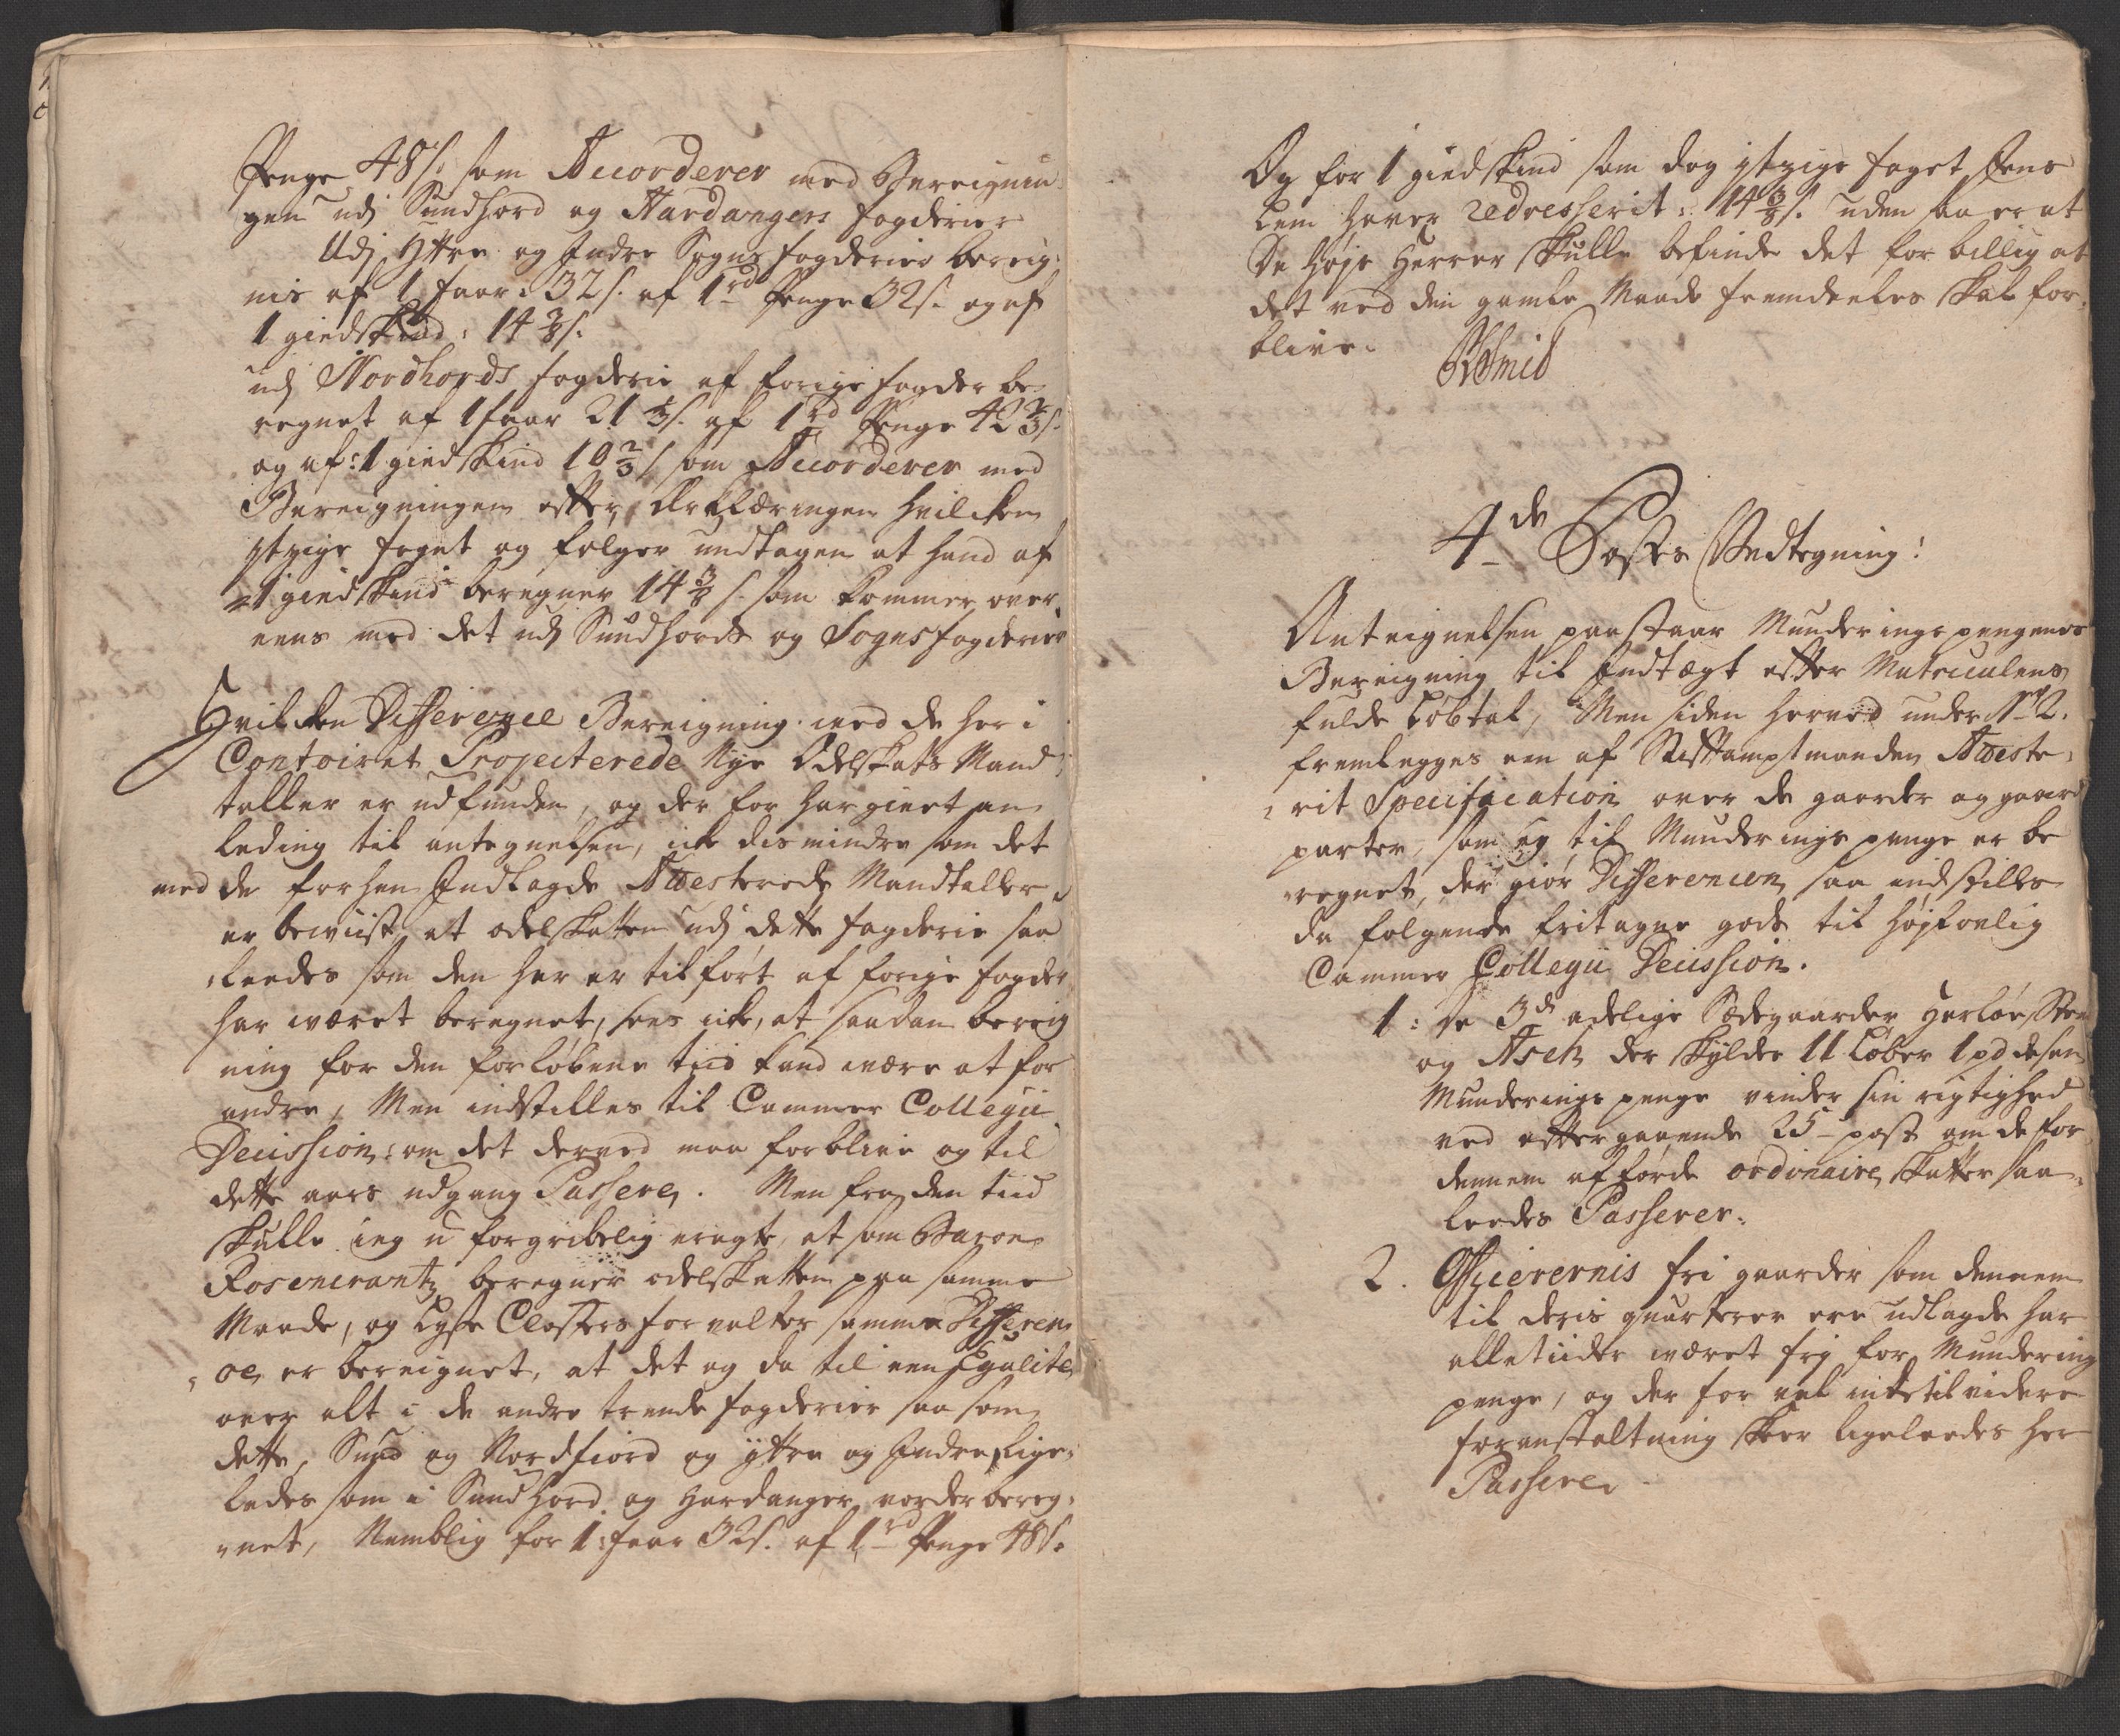 Penge 48 s. som Accorderer med Bereignin
gen udj Sundhord og Hardangers fogderier
Udj Ÿttre og Indre Sogns fogderier bereig-
nis af 1 faar: 32 s. af 1 rd Penge 32 s. og af
1 giedskind: 14 3/8 s.
udj Nordhords fogderie af forige fogder be
regnet af 1 faar 21 1/3 s. af 1 rd Penge 42 2/3 s.
og af: 1 giedskind 10 2/3 s som Accorderer med
Bereigningen efter Erklæringen hvilcken
itzige foget og følger undtagen at hand af
1 giedskind beregner 14 3/8 s. som kommer over
eens med det udj Sundhords og Sogns fogderier
Hvilcken Differenze Bereigning med de her i
Contoiret Projecterede Nye Odelskats Mand
taller er udfunden, og der for har giort an
leding til antegnelsen, icke dis mindre som det
med de forhen Indlagde Atvesterede Mandtaller
er beviist, at odelskatten udj dette fogderie saa
leedes som den her er tilført af forige fogder
har wæret beregnet, sees icke, at saadan bereig
ning for den forløbene tiid kand wære at for
andre, Men indstilles til Cammer Collegii
Decission: om det derved maa forblive og til
dette aars udgang Passere. Men fra den tiid
skulle ieg u forgribelig eragte, at som Baron
Rosencrantz beregner odelskatten paa samme
Maade, og Lyse Closters forvalter samme Differen
ce er bereignet, at det og da til een Egalite
over alt i de andre trende fogderier saa som
dette, Sund og Nordfiord og ÿttre og Indre Lige-
ledes som i Sundhord og Hardanger vorder bereg-
net, Nemblig for 1: faar 32 s. af 1 rd Penge 48 s.
Og for 1 giedskind som dog itzige foget Jens
Lem haver redresserit: 14 3/8 s. uden saa er at
De høje Herrer skulle befinde det for billig at
det ved den gamle Maade fremdeeles skal for-
blive.
Smid
4de Postes Vedtegning:
Anteignelsen paastaar Munderings pengenes
Bereigning til Indtægt efter Matriculens
fulde Løbtal, Men siden herved under No 2.
fremlegges een af Stiftamptmanden Atveste-
rit Specification over de gaarder og gaard
parter, som ey til Munderings penge er be
regnet, der giør Differencen, saa indstilles
da følgende fritagne gods til højlovlig
Cammer Collegii Decission.
1: De 3de adelige Sædegaarder Herløe, Steen
og Ask, der skylder 11 Løber 1 pd desen
Munderings penge vinder sin rigtighed
ved eftergaaende 25 – post om de for
dennem afførde ordinaire skatter saa-
leedes Passerer.
2. Officerernis fri gaarder som dennem
til deris quarterer ere udlagde har
alletiider wæret frj for Mundering
penge, og der for vel indtil videre
foranstaltning skeer ligeleedes her
Passerer.